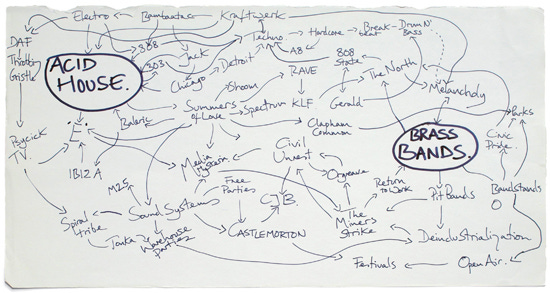 Electro
Bambaataa
Kraftwerk
DAF
808
Techno
Hardcore
Break-beat
Drum N' Bass
Throbbing Gristle
ACID HOUSE.
303
Jack
Detroit
A8
808 State
Chicago
Shoom
RAVE
The North
Melancholy
Balearic
Summers of Love
Spectrum
KLF
Gerald
Parks
Psychick TV
"E"
Clapham Common
BRASS BANDS.
Civic Pride.
IBIZA
Media Hysteria
Civil Unrest
Orgreave
M25
Free Parties
Return to Work
Pit Bands
Bandstands
Spiral Tribe
Sound Systems
C.J.B.
The Miners Strike
Tonka
Warehouse Parties
CASTLEMORTON
Deindustrialization
Festivals
Open Air.